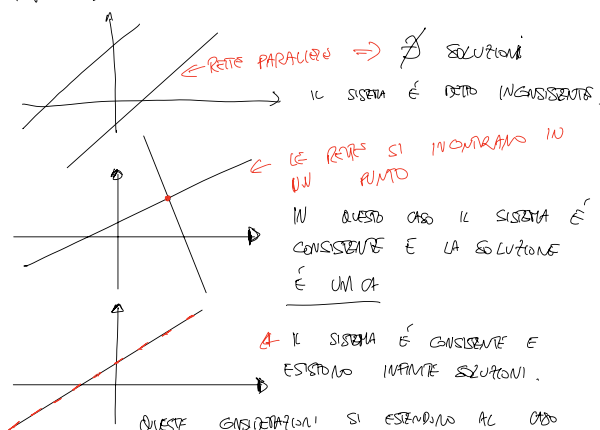 ← RETTE PARALLELE => ∄ SOLUZIONI
IL SISTEMA É DETTO INCONSISTENTE.
← LE RETTE SI INCONTRANO IN
UN PUNTO
IN QUESTO CASO IL SISTEMA É
CONSISTENTE E LA SOLUZIONE
É UNICA
← IL SISTEMA É CONSISTENTE E
ESISTONO INFINITE SOLUZIONI.
QUESTE CONSIDERAZIONI SI ESTENDONO AL CASO